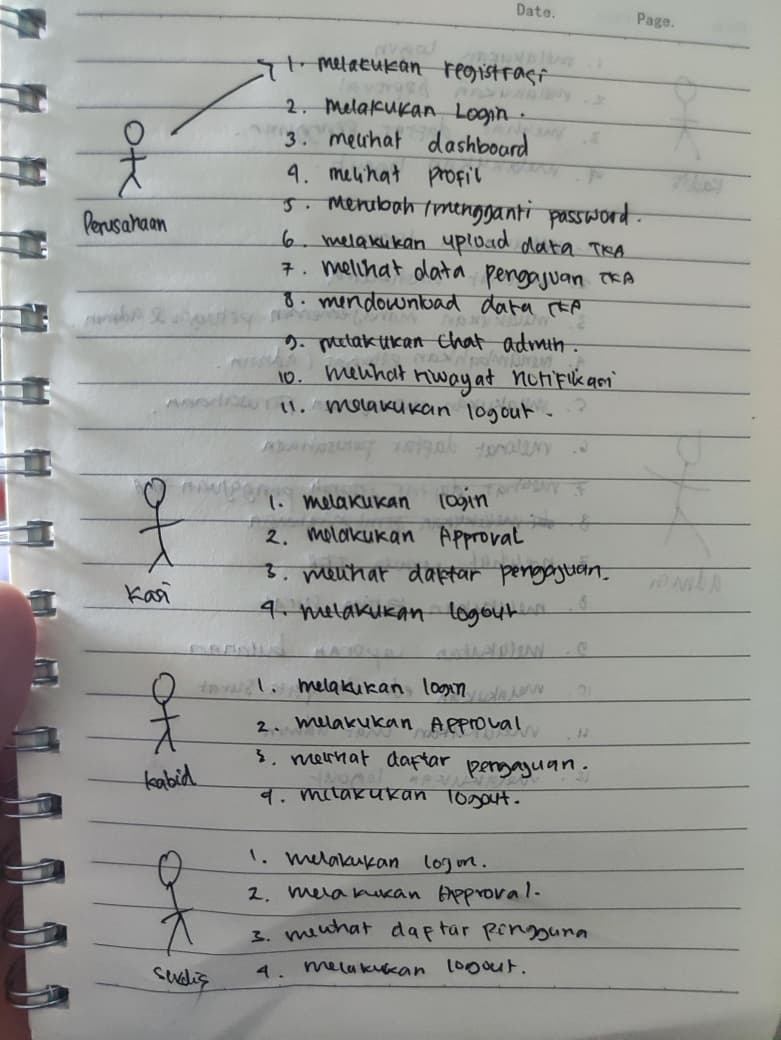 Date.
Page.
1. melakukan registrasi
2. Melakukan Login.
3. melihat dashboard
4. melihat profil
Perusahaan
5. Merubah/mengganti password.
6. melakukan upload data TKA
7. melihat data pengajuan TKA
8. mendownload data TKA
9. melakukan chat admin.
10. melihat riwayat notifikasi
11. melakukan logout.
1. melakukan login
2. melakukan Approval
3. melihat daftar pengajuan.
Kasi
4. melakukan logout
1. melakukan login
2. melakukan Approval
3. melihat daftar pengajuan.
kabid
4. melakukan logout.
1. melakukan login.
2. melakukan Approval.
3. melihat daftar pengguna
4. melakukan logout.